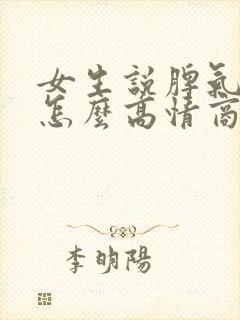 女生說脾氣
怎麼高情商
李明陽